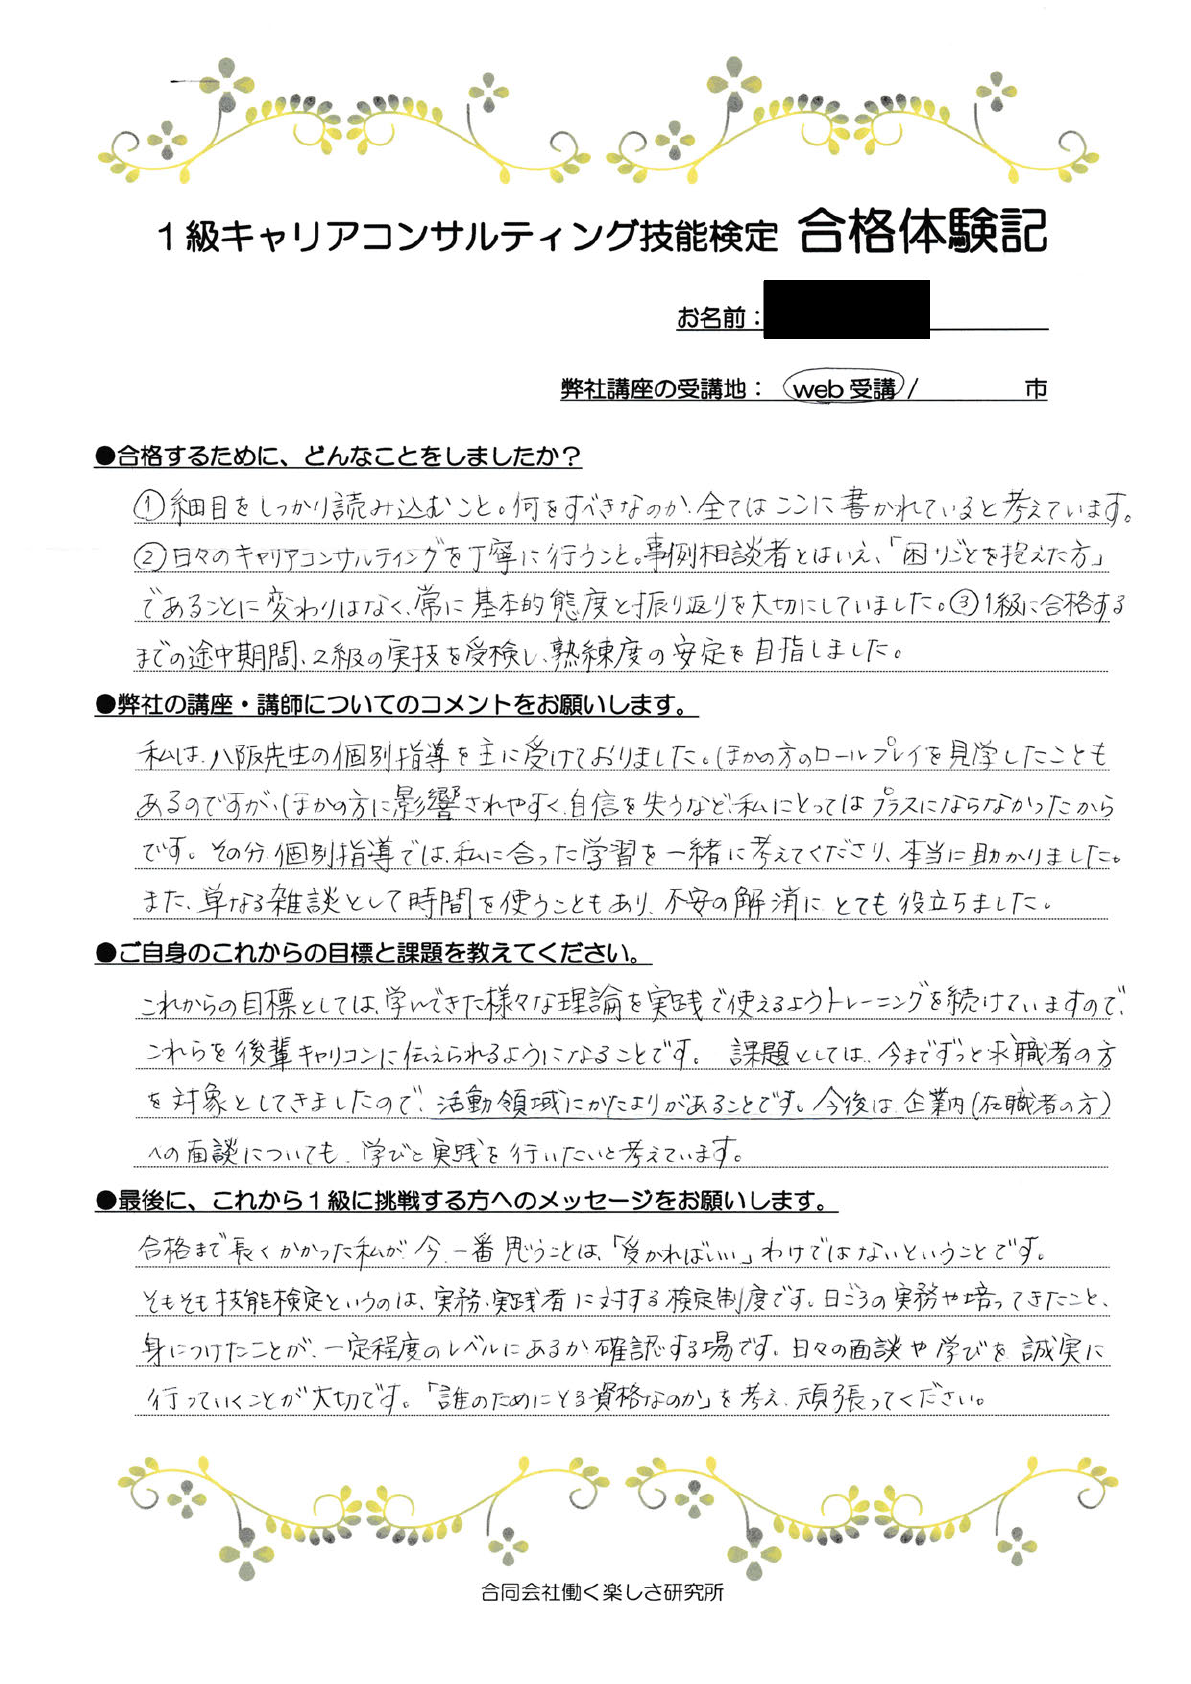 1級キャリアコンサルティング技能検定 合格体験記
お名前：
弊社講座の受講地： web受講 / 市
●合格するために、どんなことをしましたか？
①細目をしっかり読み込むこと。何をすべきなのか、全てはここに書かれていると考えています。
②日々のキャリアコンサルティングを丁寧に行うこと。事例相談者とはいえ、「困りごとを抱えた方」
であることに変わりはなく、常に基本的態度と振り返りを大切にしていました。③1級に合格する
までの途中期間、2級の実技を受検し、熟練度の安定を目指しました。
●弊社の講座・講師についてのコメントをお願いします。
私は、八阪先生の個別指導を主に受けておりました。ほかの方のロールプレイを見学したことも
あるのですが、ほかの方に影響されやすく、自信を失うなど、私にとってはプラスにならなかったから
です。その分、個別指導では、私に合った学習を一緒に考えてくださり、本当に助かりました。
また、単なる雑談として時間を使うこともあり、不安の解消にとても役立ちました。
●ご自身のこれからの目標と課題を教えてください。
これからの目標としては、学んできた様々な理論を実践で使えるようトレーニングを続けていますので、
これらを後輩キャリコンに伝えられるようになることです。 課題としては、今までずっと求職者の方
を対象としてきましたので、活動領域にかたよりがあることです。今後は、企業内(在職者の方)
への面談についても、学びと実践を行いたいと考えています。
●最後に、これから1級に挑戦する方へのメッセージをお願いします。
合格まで長くかかった私が、今、一番思うことは、「受かればいい」わけではないということです。
そもそも技能検定というのは、実務・実践者に対する検定制度です。日ごろの実務や培ってきたこと、
身につけたことが、一定程度のレベルにあるか確認する場です。日々の面談や学びを、誠実に
行っていくことが大切です。「誰のためにとる資格なのか」を考え、頑張ってください。
合同会社働く楽しさ研究所